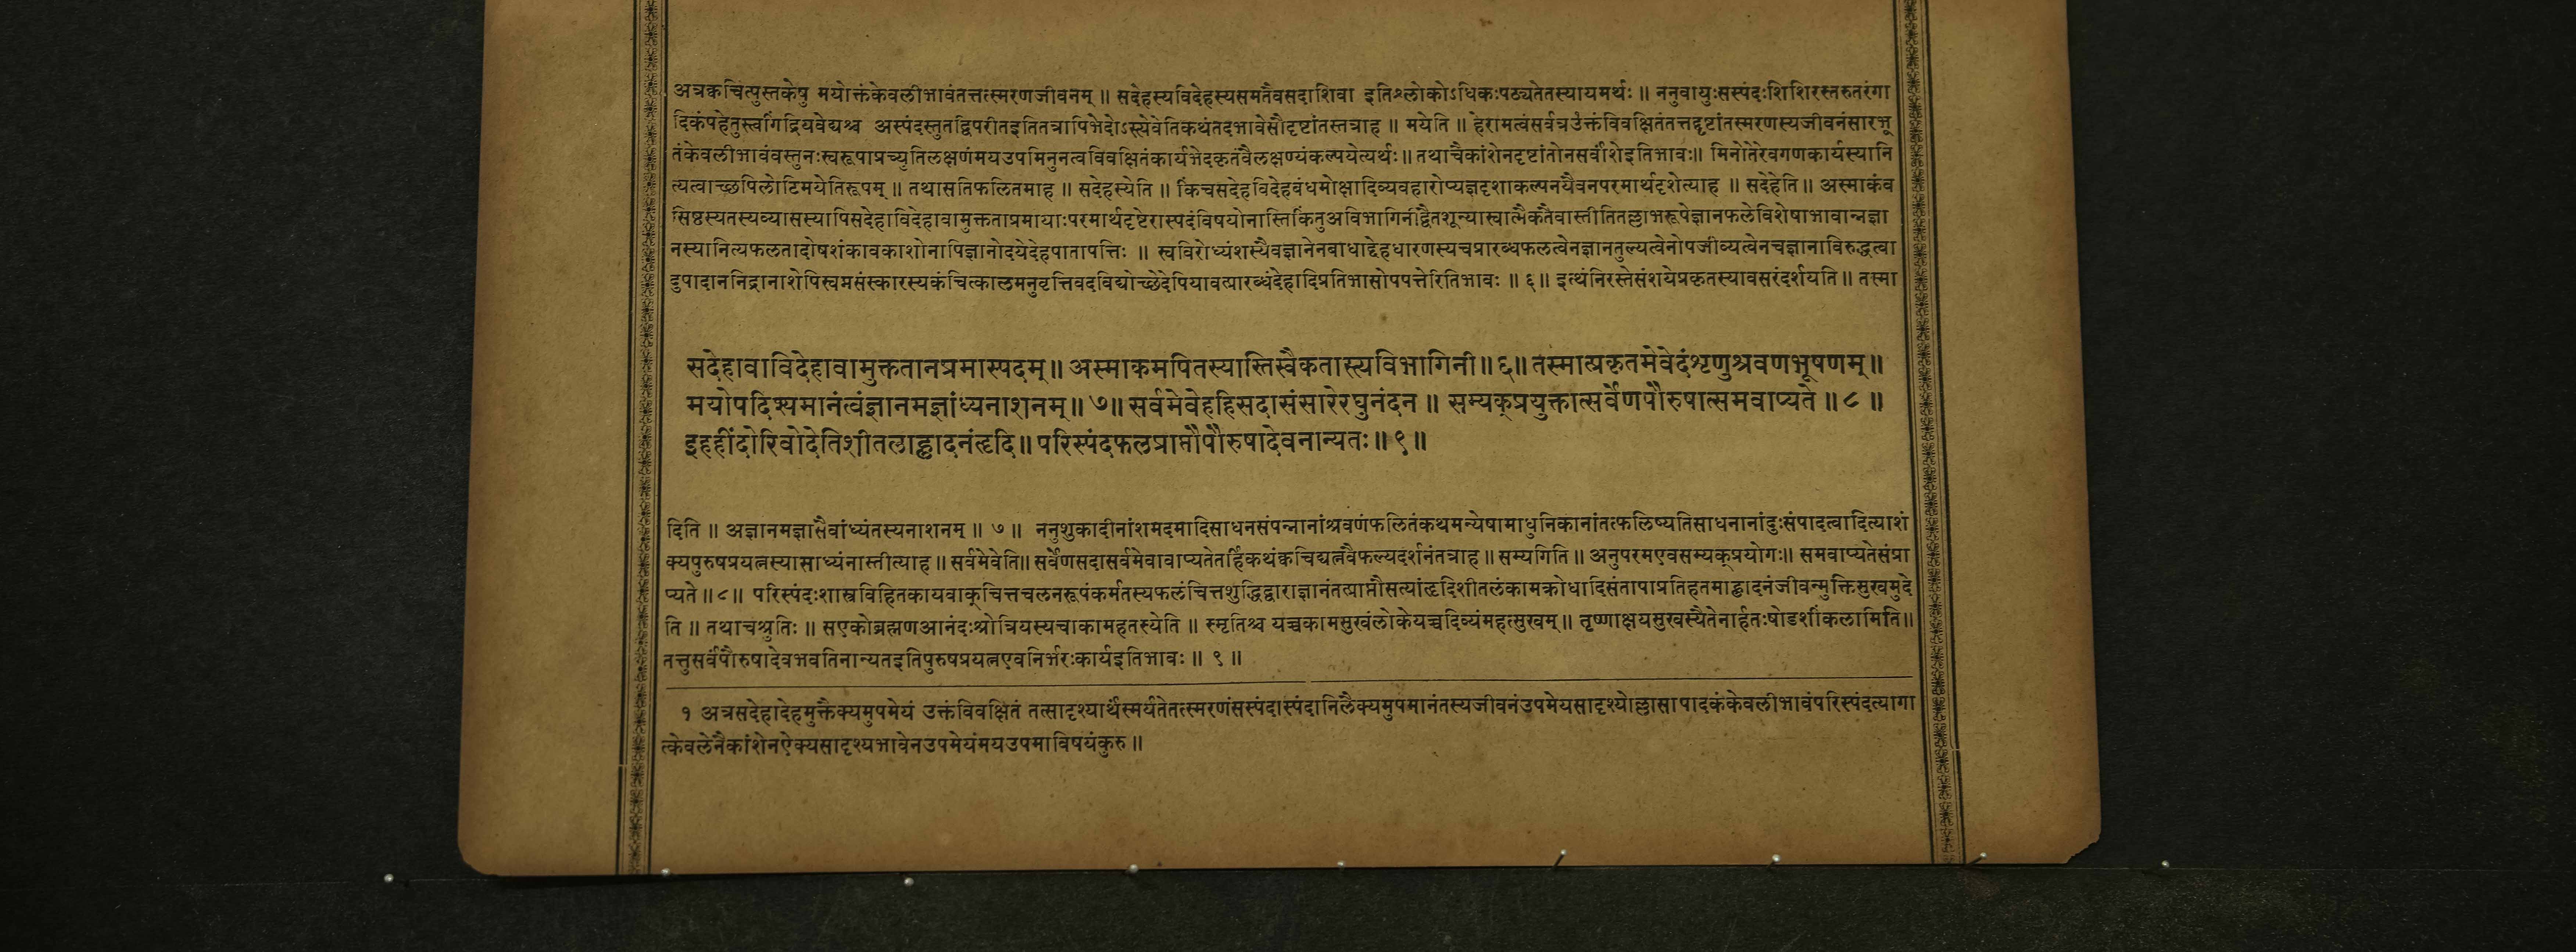 अत्रक्वचित्पुस्तकेषु मयोक्तंकेवलीभावंतत्तत्स्मरणजीवनम् ॥ सदेहस्यविदेहस्यसमतैवसदाशिवा इतिश्लोकोऽधिकःपठ्यतेतस्यायमर्थः ॥ ननुवायुःसस्पंदःशिशिरस्तरुतरंगा
दिकंपहेतुस्त्वगिंद्रियवेद्यश्च अस्पंदस्तुतद्विपरीतइतितत्रापिभेदोऽस्त्येवेतिकथंतदभावेसौदृष्टांतस्तत्राह ॥ मयेति ॥ हेरामत्वंसर्वत्रउक्तंविवक्षितंतत्तद्दृष्टांतस्मरणस्यजीवनंसारभू
तंकेवलीभावंवस्तुनःस्वरूपाप्रच्युतिलक्षणंमयउपमिनुनत्वविवक्षितंकार्यभेदकृतंवैलक्षण्यंकल्पयेत्यर्थः॥ तथाचैकांशेनदृष्टांतोनसर्वांशेइतिभावः॥ मिनोतेरेवगणकार्यस्यानि
त्यत्वाच्छपिलोटिमयेतिरूपम् ॥ तथासतिफलितमाह ॥ सदेहस्येति ॥ किंचसदेहविदेहबंधमोक्षादिव्यवहारोप्यज्ञदृशाकल्पनयैवनपरमार्थदृशेत्याह ॥ सदेहेति ॥ अस्माकंव
सिष्ठस्यतस्यव्यासस्यापिसदेहाविदेहावामुक्तताप्रमायाःपरमार्थदृष्टेरास्पदंविषयोनास्तिकिंतुअविभागिनीद्वैतशून्यास्वात्मैकतैवास्तीतितल्लाभरूपेज्ञानफलेविशेषाभावान्नज्ञा
नस्यानित्यफलतादोषशंकावकाशोनापिज्ञानोदयेदेहपातापत्तिः ॥ स्वविरोध्यंशस्यैवज्ञानेनबाधाद्देहधारणस्यचप्रारब्धफलत्वेनज्ञानतुल्यत्वेनोपजीव्यत्वेनचज्ञानाविरुद्धत्वा
दुपादाननिद्रानाशेपिस्वप्नसंस्कारस्यकंचित्कालमनुवृत्तिवदविद्योच्छेदेपियावत्प्रारब्धंदेहादिप्रतिभासोपपत्तेरितिभावः ॥ ६ ॥ इत्थंनिरस्तेसंशयेप्रकृतस्यावसरंदर्शयति ॥ तस्मा
सदेहावाविदेहावामुक्ततानप्रमास्पदम् ॥ अस्माकमपितस्यास्तिस्वैकतास्त्यविभागिनी ॥ ६ ॥ तस्मात्प्रकृतमेवेदंशृणुश्रवणभूषणम् ॥
मयोपदिश्यमानंत्वंज्ञानमज्ञांध्यनाशनम् ॥ ७ ॥ सर्वमेवेहहिसदासंसारेरघुनंदन ॥ सम्यक्प्रयुक्तात्सर्वेणपौरुषात्समवाप्यते ॥ ८ ॥
इहहींदोरिवोदेतिशीतलाह्लादनंहृदि ॥ परिस्पंदफलप्राप्तौपौरुषादेवनान्यतः ॥ ९ ॥
दिति ॥ अज्ञानमज्ञासैवांध्यंतस्यनाशनम् ॥ ७ ॥ ननुशुकादीनांशमदमादिसाधनसंपन्नानांश्रवणंफलितंकथमन्येषामाधुनिकानांतत्फलिष्यतिसाधनानांदुःसंपादत्वादित्याशं
क्यपुरुषप्रयत्नस्यासाध्यंनास्तीत्याह ॥ सर्वमेवेति॥ सर्वेणसदासर्वमेवावाप्यतेतर्हिकथंक्वचिद्यत्नवैफल्यदर्शनंतत्राह ॥ सम्यगिति ॥ अनुपरमएवसम्यक्प्रयोगः॥ समवाप्यतेसंप्रा
प्यते ॥ ८ ॥ परिस्पंदःशास्त्रविहितकायवाक्चित्तचलनरूपंकर्मतस्यफलंचित्तशुद्धिद्वाराज्ञानंतत्प्राप्तौसत्यांहृदिशीतलंकामक्रोधादिसंतापाप्रतिहतमाह्लादनंजीवन्मुक्तिसुखमुदे
ति ॥ तथाचश्रुतिः ॥ सएकोब्रह्मणआनंदःश्रोत्रियस्यचाकामहतस्येति ॥ स्मृतिश्च यच्चकामसुखंलोकेयच्चदिव्यंमहत्सुखम् ॥ तृष्णाक्षयसुखस्यैतेनार्हतःषोडशींकलामिति॥
तत्तुसर्वंपौरुषादेवभवतिनान्यतइतिपुरुषप्रयत्नएवनिर्भरःकार्यइतिभावः ॥ ९ ॥
१ अत्रसदेहादेहमुक्तैक्यमुपमेयं उक्तंविवक्षितं तत्सादृश्यार्थंस्मर्यतेतत्स्मरणंसस्पंदास्पंदानिलैक्यमुपमानंतस्यजीवनंउपमेयसादृश्योल्लासापादकंकेवलीभावंपरिस्पंदत्यागा
त्केवलेनैकांशेनऐक्यसादृश्यभावेनउपमेयंमयउपमाविषयंकुरु ॥